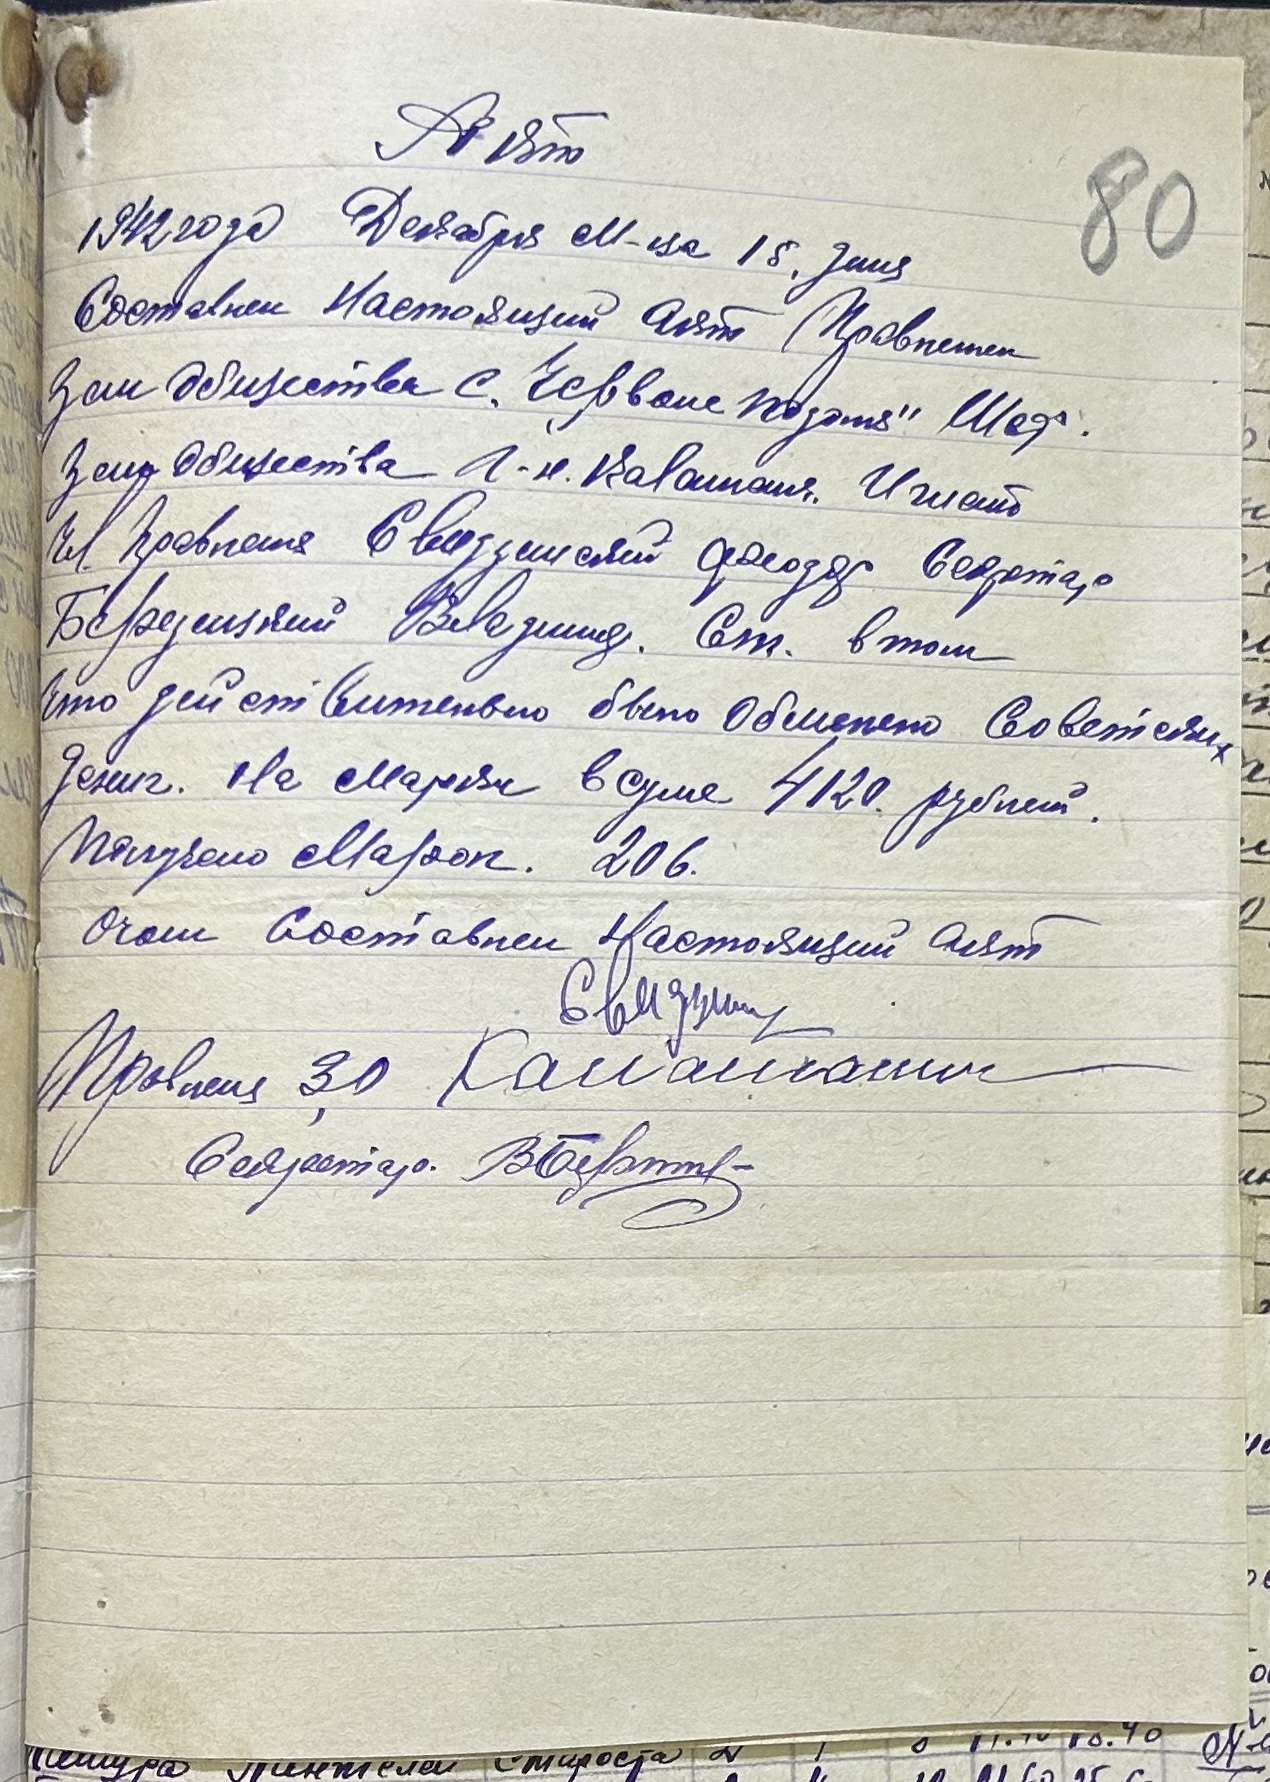 Акт
80
1942 года Декабря М-ца 15. дня
Составлен Настоящий акт Правлением
Зем общества с. "Червоне поготя" Шеф.
Зем общества Г-н. Каламаня. Игнат
Чл. Правления Свидзинский Феодор Секретарь
Бердецкий Владимир. Ст. в том
что действительно было Обменено Советских
Дениг. На Марки в суме 4120. рублей.
Получено Марок. 206.
Очом Составлен Настоящий акт
Свидзин
Правления ЗО
Секретарь.